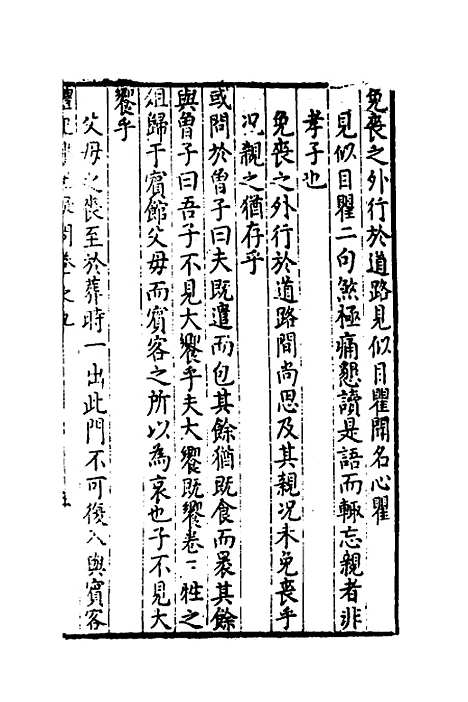 免喪之外行於道路見似目瞿聞名心瞿
見似目瞿二句煞極痛懇讀是語而輙忘親者非
孝子也
免喪之外行於道路間尚思及其親况未免喪乎
况親之猶存乎
或問於曾子曰夫既遣而包其餘猶既食而褁其餘
與曾子曰吾子不見大饗乎夫大饗既饗卷三牲之
俎歸于賓館父母而賓客之所以為哀也子不見大
饗乎
父母之喪至於葬時一出此門不可復入與賓客
禮記 問卷之九